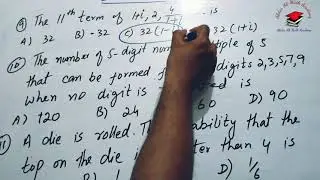 Maha Ali Math Academy
9) The 11th term of 1+i, 2, 4/1+i is
A) 32 B) -32 C) 32(1- 32(1+i)
10) The number of 5-digit num tiple of 5
that can be formed digits 2,3,5,7,9
when no digit is ed is
A) 120 B) 24 60 D) 90
11) A die is rolled. The ability that the
top on the die i ter than 4 is
B) 1 D) 1/6